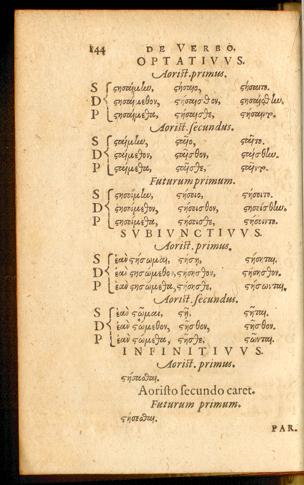 144 DE VERBO.
OPTATIVVS.
Aorist. primus.
S στησαίμην, στήσαιο, στήσαιτο.
D στησαίμεθον, στήσαισθον, στησαίσθην,
P στησαίμεθα, στήσαισθε, στήσαιντο.
Aorist. secundus.
S σταίμην, σταῖο, σταῖτο.
D σταίμεθον, σταῖσθον, σταίσθην.
P σταίμεθα, σταῖσθε, σταῖντο.
Futurum primum.
S στησοίμην, στήσοιο, στήσοιτο.
D στησοίμεθον, στήσοισθον, στησοίσθην.
P στησοίμεθα, στήσοισθε, στήσοιντο.
SVBIVNCTIVVS.
Aorist. primus.
S ἐὰν στήσωμαι, στήσῃ, στήσηται.
D ἐὰν στησώμεθον, στήσησθον, στήσησθον.
P ἐὰν στησώμεθα, στήσησθε, στήσωνται.
Aorist. secundus.
S ἐὰν στῶμαι, στῇ, στῆται.
D ἐὰν στώμεθον, στῆσθον, στῆσθον.
P ἐὰν στώμεθα, στῆσθε, στῶνται.
INFINITIVVS.
Aorist. primus.
στήσασθαι.
Aoristo secundo caret.
Futurum primum.
στήσεσθαι.
PAR.